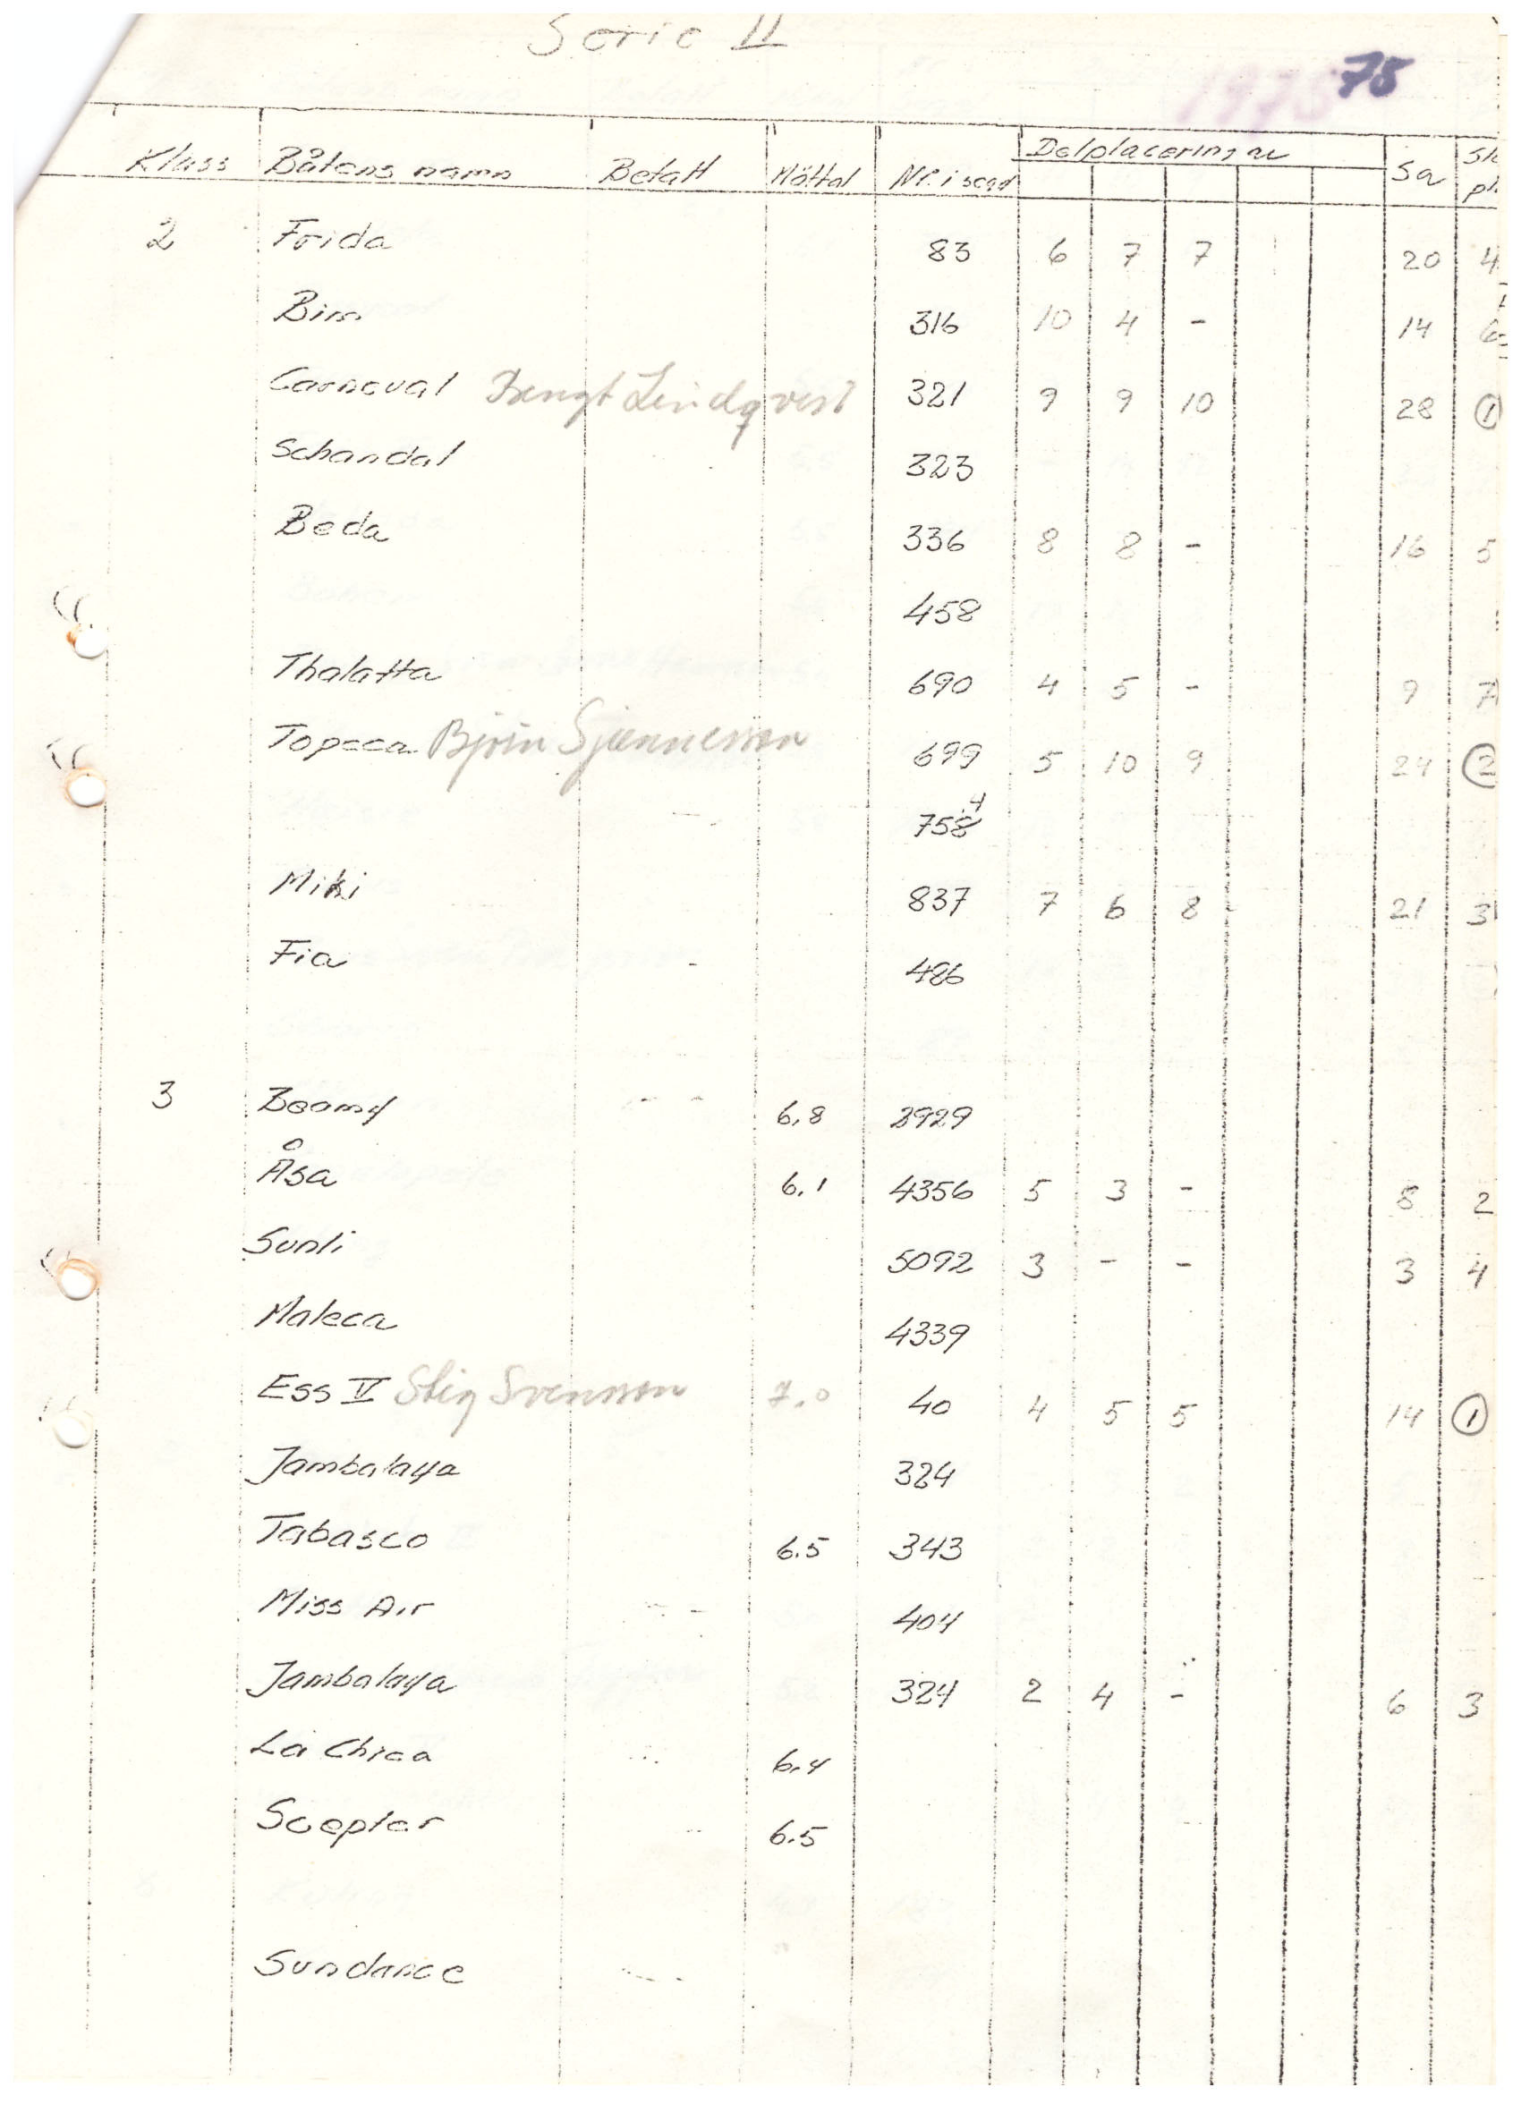 Serie II
1975 75
Klass Båtens namn Betalt Mättal Nr. i segel Delplaceringar Sa pl.
2 Frida 83 6 7 7 20 4
Bim 316 10 4 - 14 6
Carneval Bengt Lindqvist 321 9 9 10 28 1
Schandal 323
Beda 336 8 8 - 16 5
458
Thalatta 690 4 5 - 9 7
Topeca Björn 699 5 10 9 24 2
758 4
Miki 837 7 6 8 21 3
Fia 486
3 Beamy 6,8 2929
Åsa 6,1 4356 5 3 - 8 2
Sunli 5092 3 - - 3 4
Maleca 4339
Ess V Stig Svensson 7.0 40 4 5 5 14 1
Jambalaya 324
Tabasco 6.5 343
Miss Air 404
Jambalaya 324 2 4 - 6 3
La Chica 6.4
Scepter 6.5
Sundance